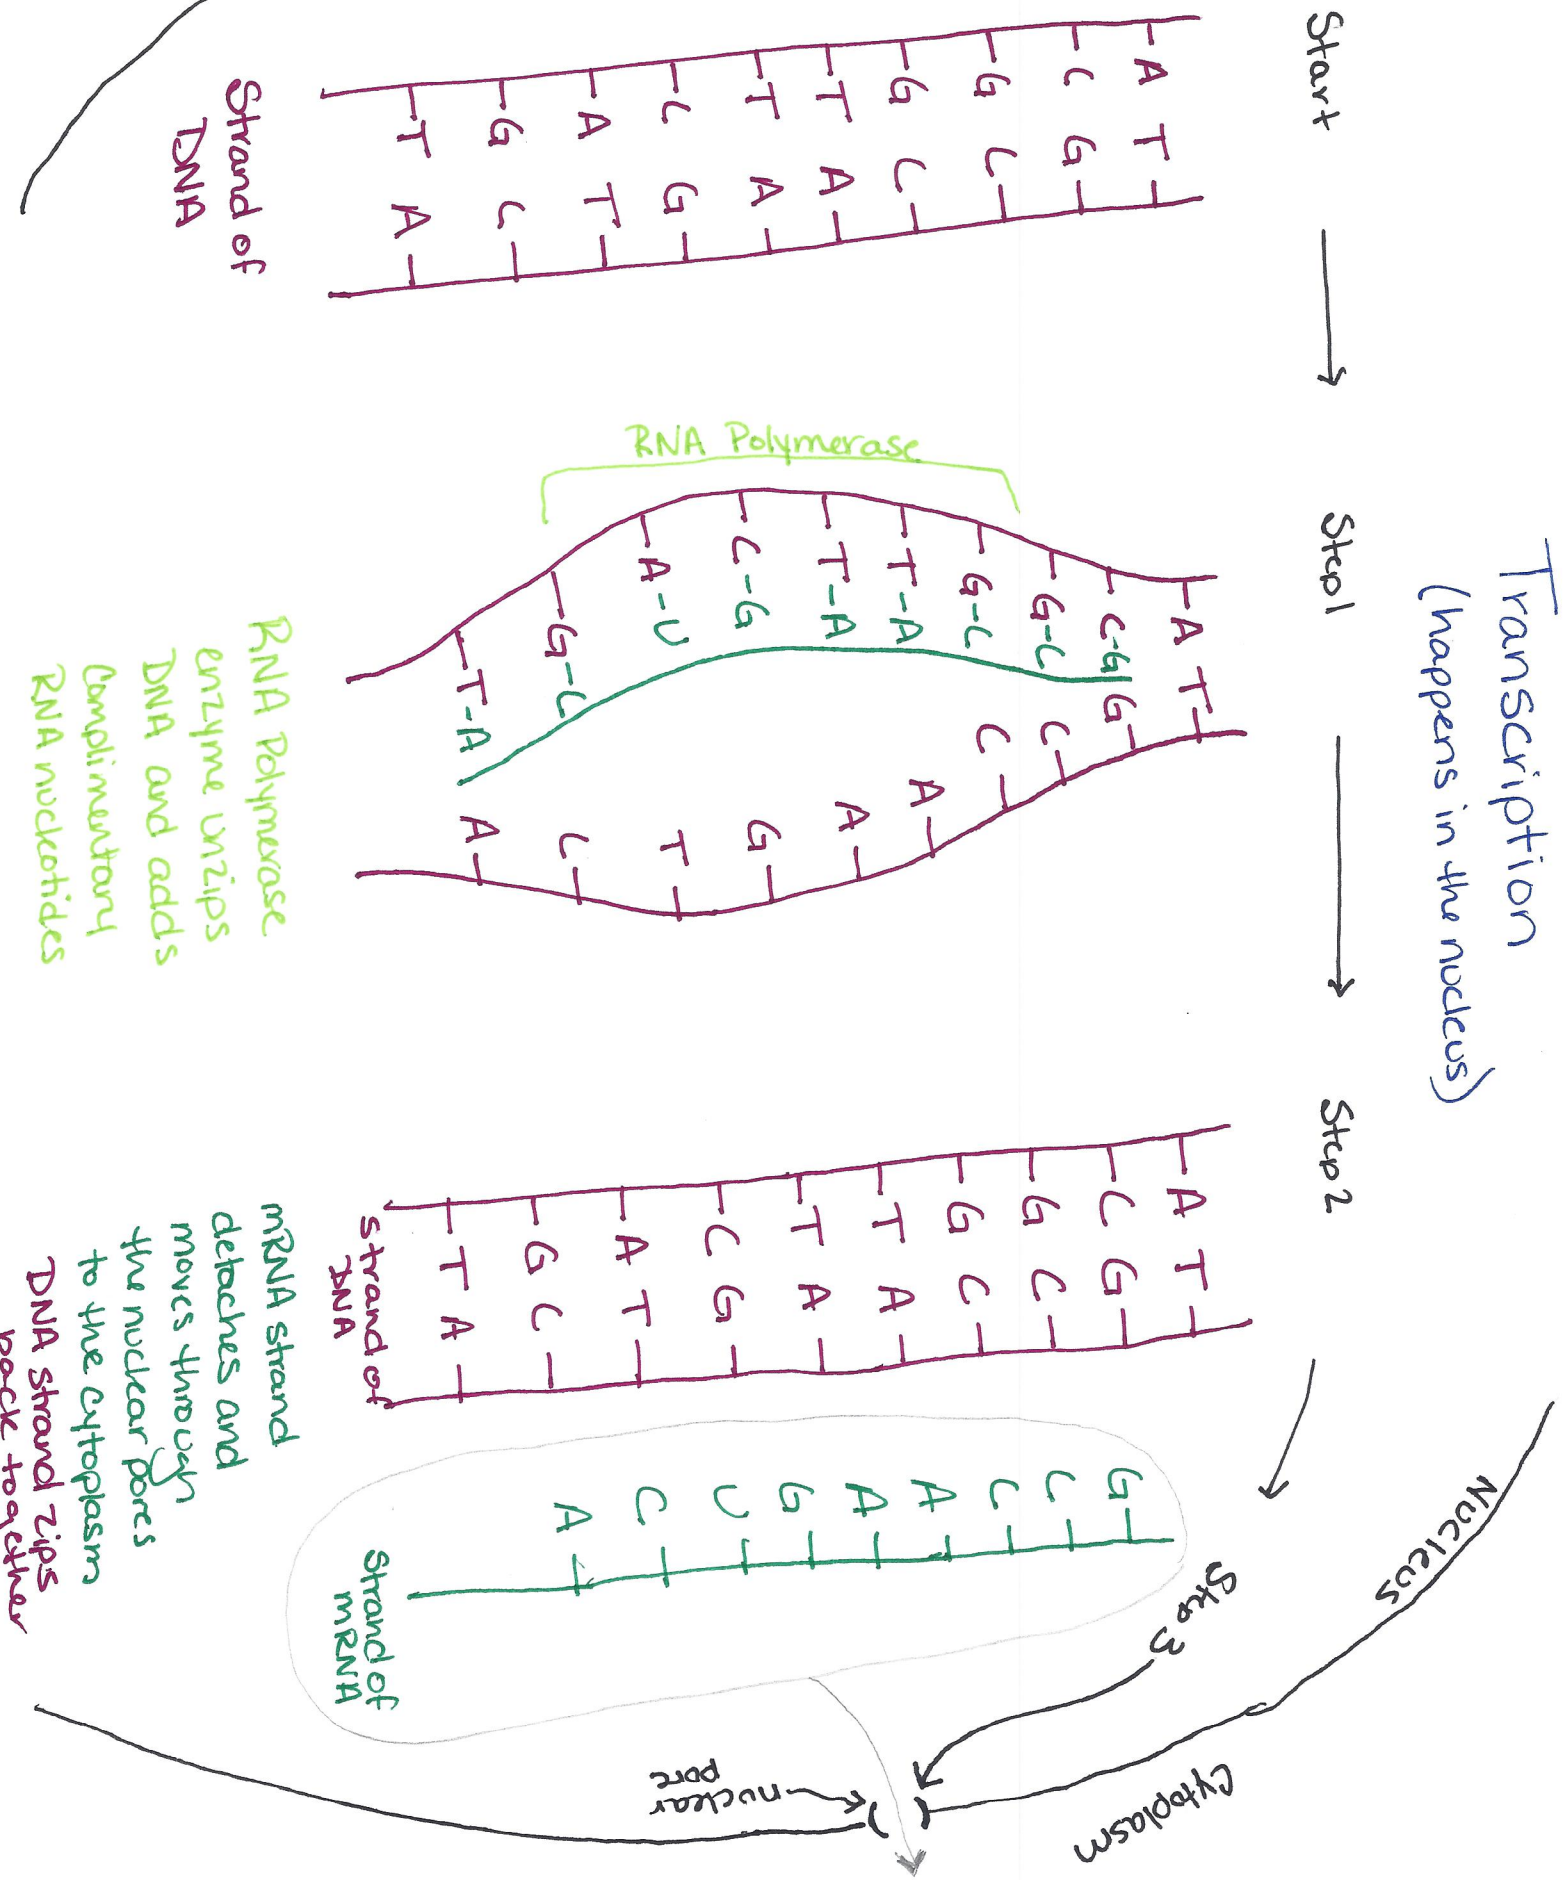 Transcription
(happens in the nucleus)
Start
Step1
Step2
Nucleus
Step 3
Cytoplasm
nuclear
pore
A T
C G
G C
G C
T A
T A
C G
A T
G C
T A
Strand of
DNA
RNA Polymerase
A T
C-G G
G-C C
G-C C
T-A A
T-A A
C-G G
A-U T
G-C C
T-A A
RNA Polymerase
enzyme unzips
DNA and adds
Complimentary
RNA nucleotides
A T
C G
G C
G C
T A
T A
C G
A T
G C
T A
Strand of
DNA
G
C
C
A
A
G
U
C
A
Strand of
mRNA
mRNA strand
detaches and
moves through
the nuclear pores
to the cytoplasm
DNA strand zips
back together